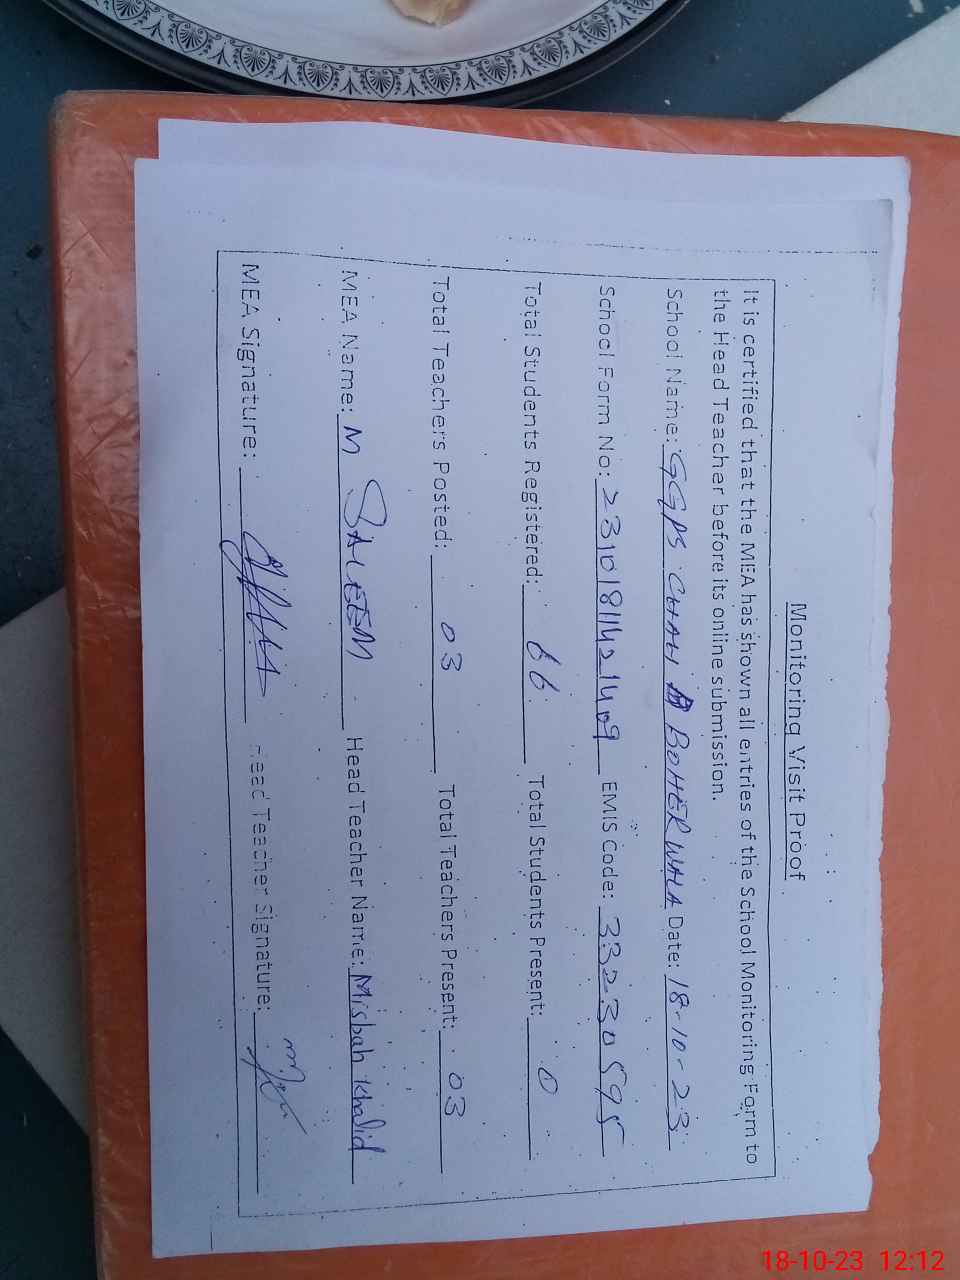 Monitoring Visit Proof
It is certified that the MEA has shown all entries of the School Monitoring Form to
the Head Teacher before its online submission.
School Name: GGPS CHAH BOHER WALA Date: 18-10-23
School Form No: EMIS Code: 33230595
Total Students Registered: 66 Total Students Present: 0
Total Teachers Posted: 03 Total Teachers Present: 03
MEA Name: M SALEEM Head Teacher Name: Misbah Khalid
MEA Signature: Head Teacher Signature:
18-10-23 12:12